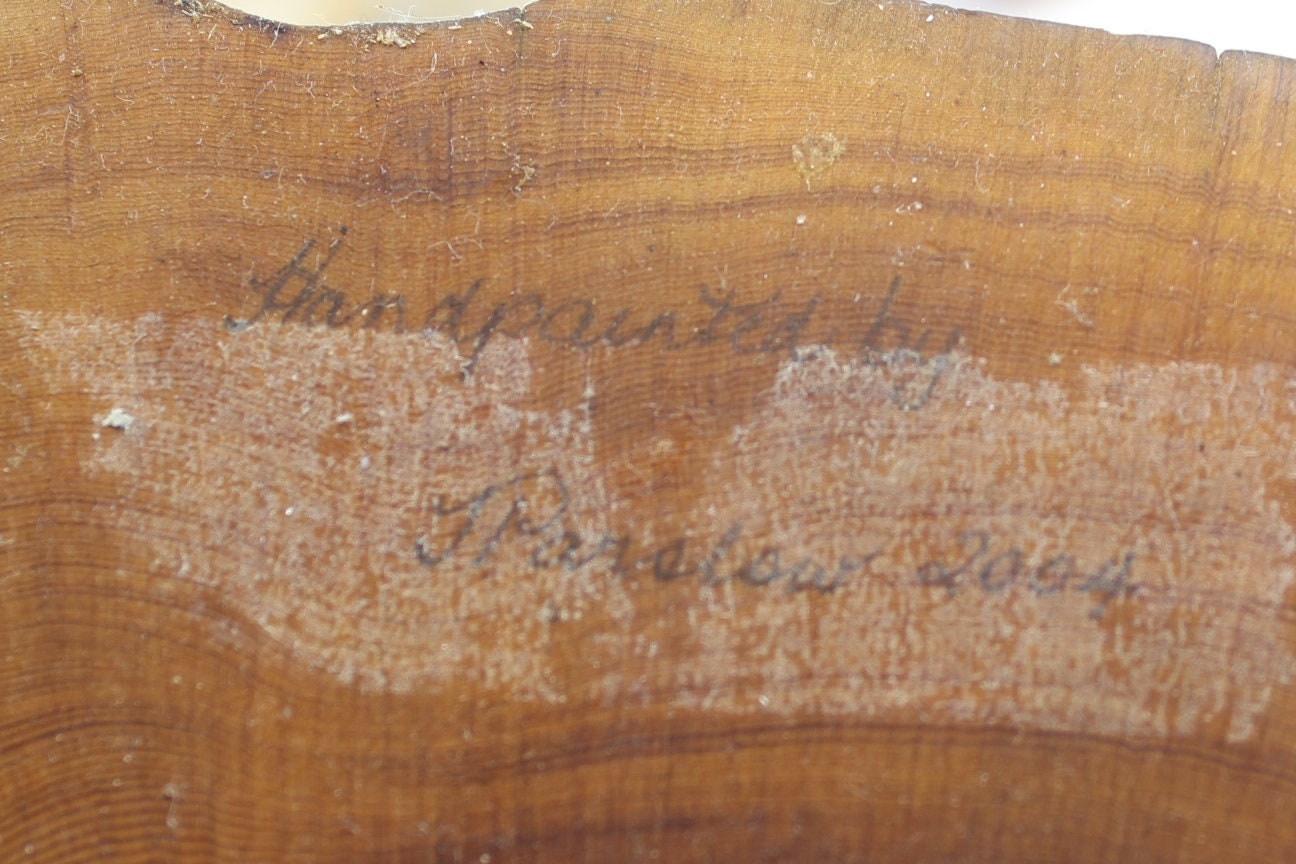 Handpainted by
J Parslow 2004